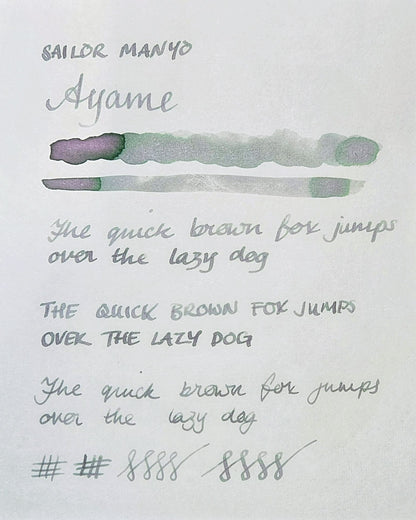 SAILOR MANYO
Ayame
The quick brown fox jumps
over the lazy dog
THE QUICK BROWN FOX JUMPS
OVER THE LAZY DOG
The quick brown fox jumps
over the lazy dog